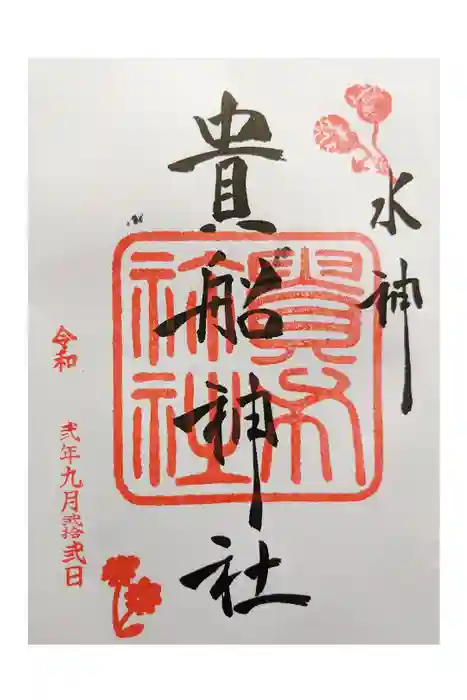 水神
貴船神社
貴布
祢社
令和
弐年九月弐拾弐日